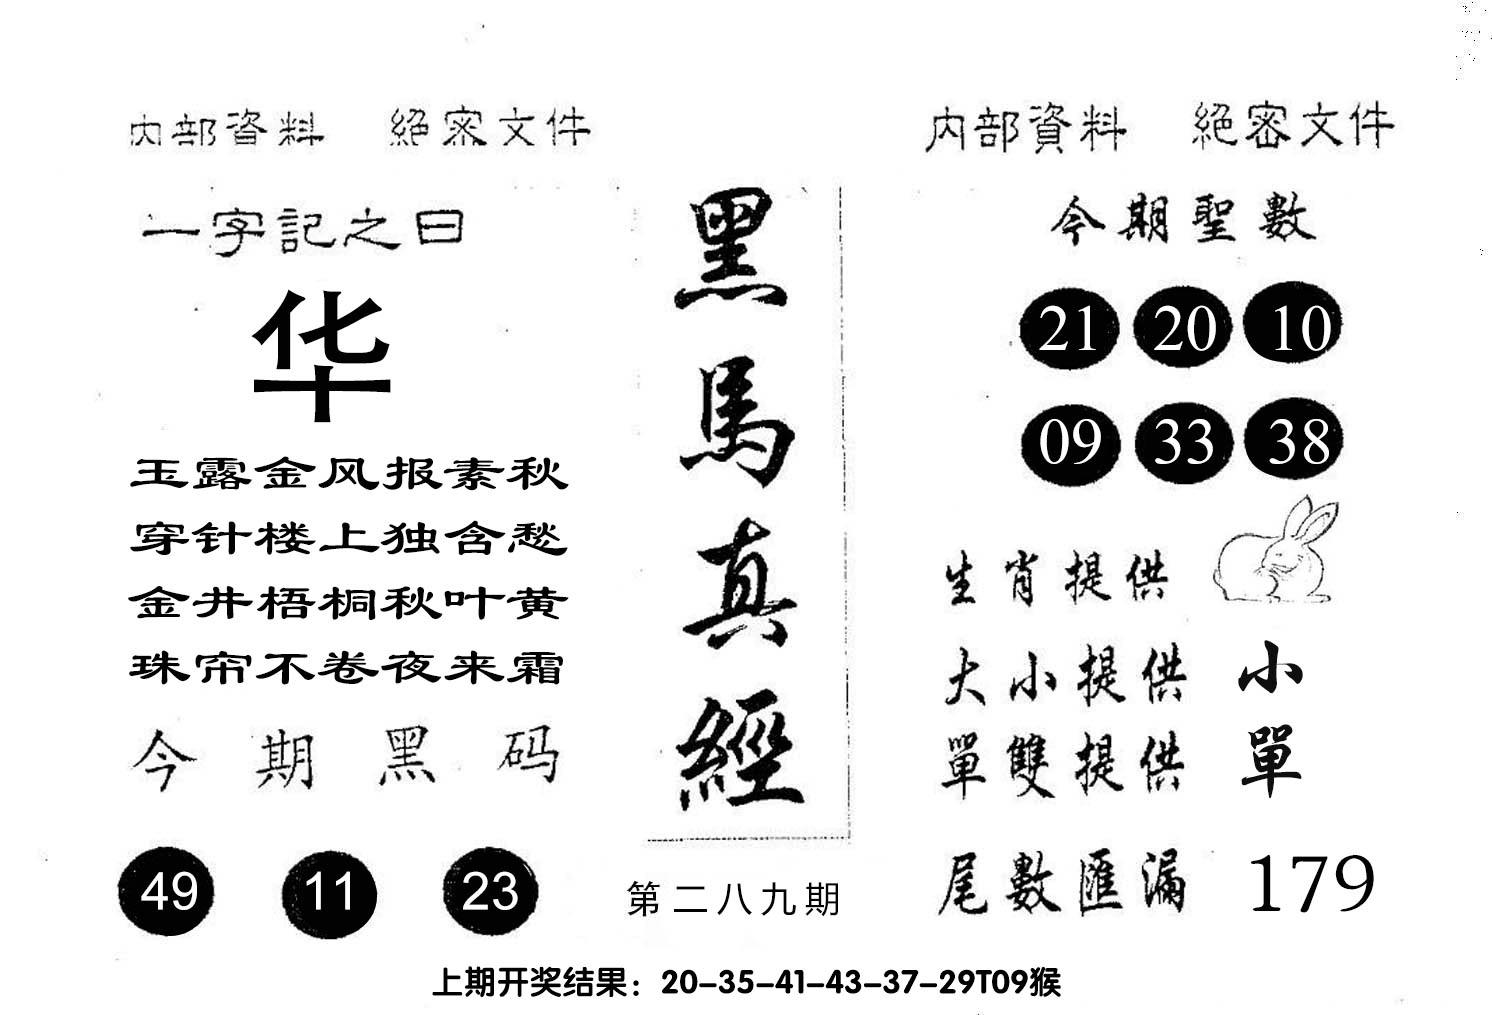 内部資料 絕密文件
一字記之曰
华
玉露金风报素秋
穿针楼上独含愁
金井梧桐秋叶黄
珠帘不卷夜来霜
今期黑码
49 11 23
黑馬真經
第二八九期
内部資料 絕密文件
今期聖數
21 20 10
09 33 38
生肖提供
大小提供 小
單雙提供 單
尾數匯漏 179
上期开奖结果：20-35-41-43-37-29T09猴